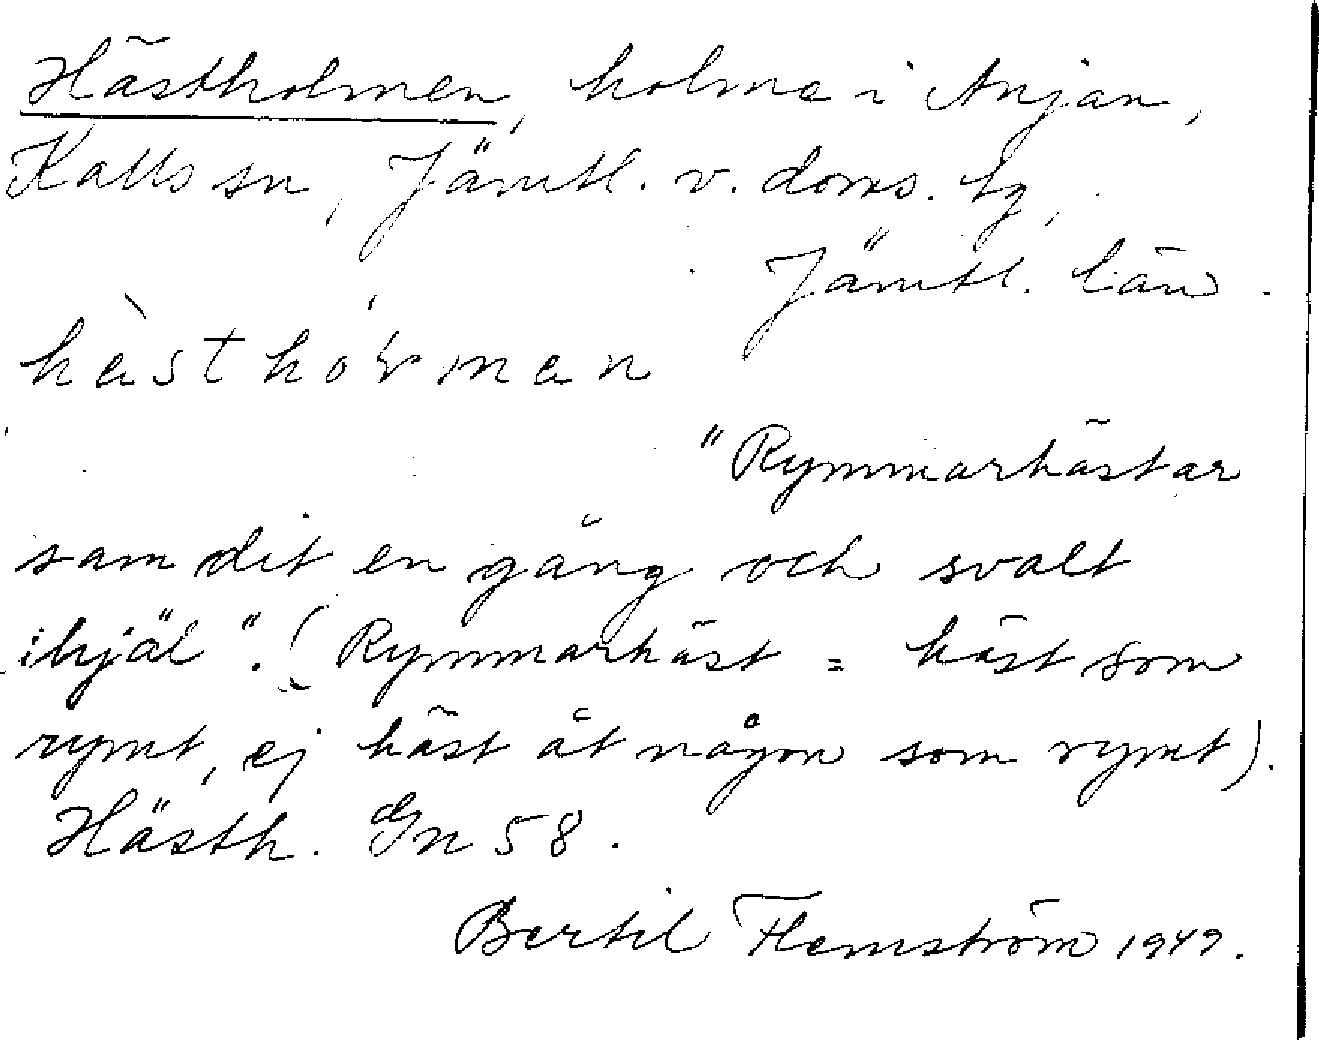 Hästholmen, holme i Anjan,
Kalls sn, Jämtl. v. doms. tg,
Jämtl. län.
hàsthórman
"Rymmarhästar
sam dit en gång och svalt
ihjäl". (Rymmarhäst = häst som
rymt, ej häst åt någon som rymt).
Hästh. Gn 58.
Bertil Flemström 1949.